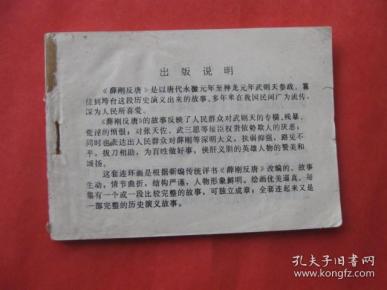 出版说明
《薛刚反唐》是以唐代永徽元年至神龙元年武则天参政、篡
位到垮台这段历史演义出来的故事，多年来在我国民间广为流传，
深为人民所喜爱。
《薛刚反唐》的故事反映了人民群众对武则天的专横、残暴、
荒淫的愤恨；对张天佐、武三思等佞臣权贵依势欺人的厌恶；
同时也表达出人民群众对薛刚等深明大义，扶弱抑强，路见不
平，拔刀相助，为百姓做好事，侠肝义胆的英雄人物的赞美和
颂扬。
这套连环画是根据新编传统评书《薛刚反唐》改编的。故事
生动，情节曲折，结构严谨，人物形象鲜明。绘画优美逼真。每
集有一个或一段比较完整的故事，可独立成章；全套连起来又是一
部完整的历史演义故事。
孔夫子旧书网